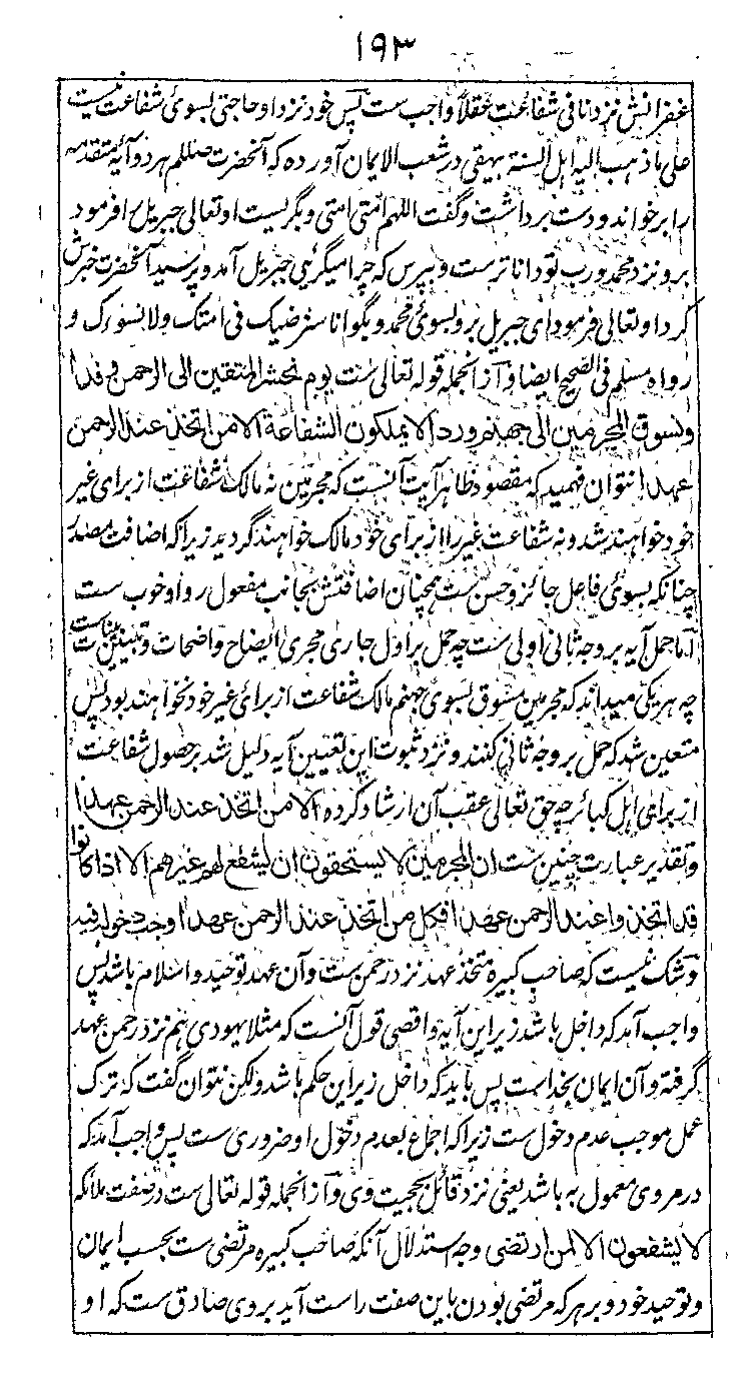 ۱۹۳
غفرانش نزد نافی شفاعت عقلاً واجب ست پس خود نزد او حاجتی بسوئ شفاعت نیست
علی ما ذهب الیه اهل السنة بیهقی در شعب الایمان آورده که آنحضرت صللم هر دو آیهٔ متقدمه
را برخواند و دست برداشت و گفت اللهم امتی امتی و بگریست او تعالی جبریل را فرمود
برو نزد محمد و رب تو دانا ترست و بپرس که چرا میگریی جبریل آمد و پرسید آنحضرت خبرش
کرد او تعالی فرمود ای جبریل برو بسوئ محمد و بگو انا سنرضیک فی امتک ولا نسوءک و
رواه مسلم فی الصحیح ایضا و از انجمله قوله تعالی ست یوم نحشر المتقین الی الرحمن وفدا
ونسوق المجرمین الی جهنم وردا لا یملکون الشفاعة الا من اتخذ عند الرحمن
عهدا نتوان فهمید که مقصود ظاهر آیت آنست که مجرمین نه مالک شفاعت از برای غیر
خود خواهند شد و نه شفاعت غیر را از برای خود مالک خواهند گردید زیرا که اضافت مصدر
چنانکه بسوئ فاعل جائز و حسن ست همچنان اضافتش بجانب مفعول روا و خوب ست
اما حمل آیه بر وجه ثانی اولی ست چه حمل بر اول جاری مجری ایضاح واضحات و تبیین بینات ست
چه هر یکی میداند که مجرمین مسوق بسوئ جهنم مالک شفاعت از برائ غیر خود نخواهند بود پس
متعین شد که حمل بر وجه ثانی کنند و نزد ثبوت این تعیین آیه دلیل شد بر حصول شفاعت
از برای اهل کبائر چه حق تعالی عقب آن ارشاد کرده الا من اتخذ عند الرحمن عهدا
و تقدیر عبارت چنین ست ان المجرمین لا یستحقون ان یشفع لهم غیرهم الا اذا کانوا
قد اتخذوا عند الرحمن عهدا فکل من اتخذ عند الرحمن عهدا وجب دخوله فیه
و شک نیست که صاحب کبیره متخذ عهد نزد رحمن ست و آن عهد توحید و اسلام باشد پس
واجب آمد که داخل باشد زیر این آیه و اقصی قول آنست که مثلا یهودی هم نزد رحمن عهد
گرفته و آن ایمان بخداست پس باید که داخل زیر این حکم باشد ولکن نتوان گفت که ترک
عمل موجب عدم دخول ست زیرا که اجماع بعدم دخول او ضروری ست پس واجب آمد که
در مروی معمول به باشد یعنی نزد قائل بحجیت وی و از انجمله قوله تعالی ست در صفت ملائکه
لا یشفعون الا لمن ارتضی وجه استدلال آنکه صاحب کبیره مرتضی ست بحسب ایمان
و توحید خود و بر هر که مرتضی بودن باین صفت راست آید بر وی صادق ست که او